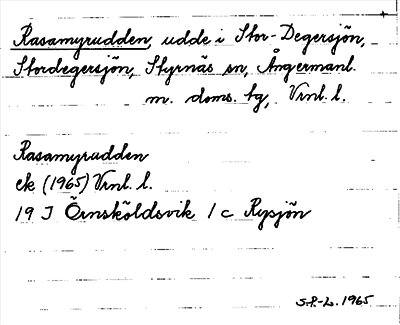 Rasamyrudden, udde i Stor-Degersjön,
Stordegersjön, Styrnäs sn, Ångermanl.
m. doms. tg, Vrnl. l.
Rasamyrudden
ek (1965) Vrnl. l.
19 J Örnsköldsvik 1 c Rysjön
S.P.-L. 1965